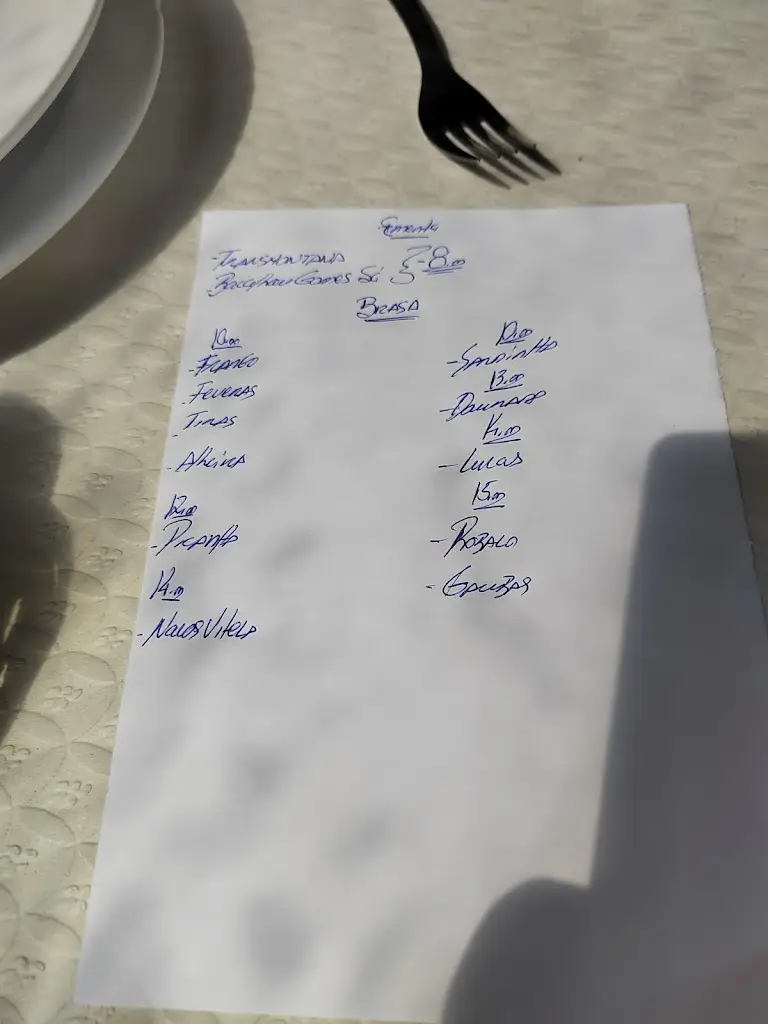 Ementa
- TRANSMONTANA
- Bacalhau Gomes Sá } - 8.00
BRASA
10.00
- FRANGO
- FEVERAS
- TIRAS
- Alheira
12.00
- PICANHA
14.00
- Nacos Vitela
10.00
- SARDINHA
13.00
- DOURADA
14.00
- Lulas
15.00
- ROBALO
- GAROUPAS